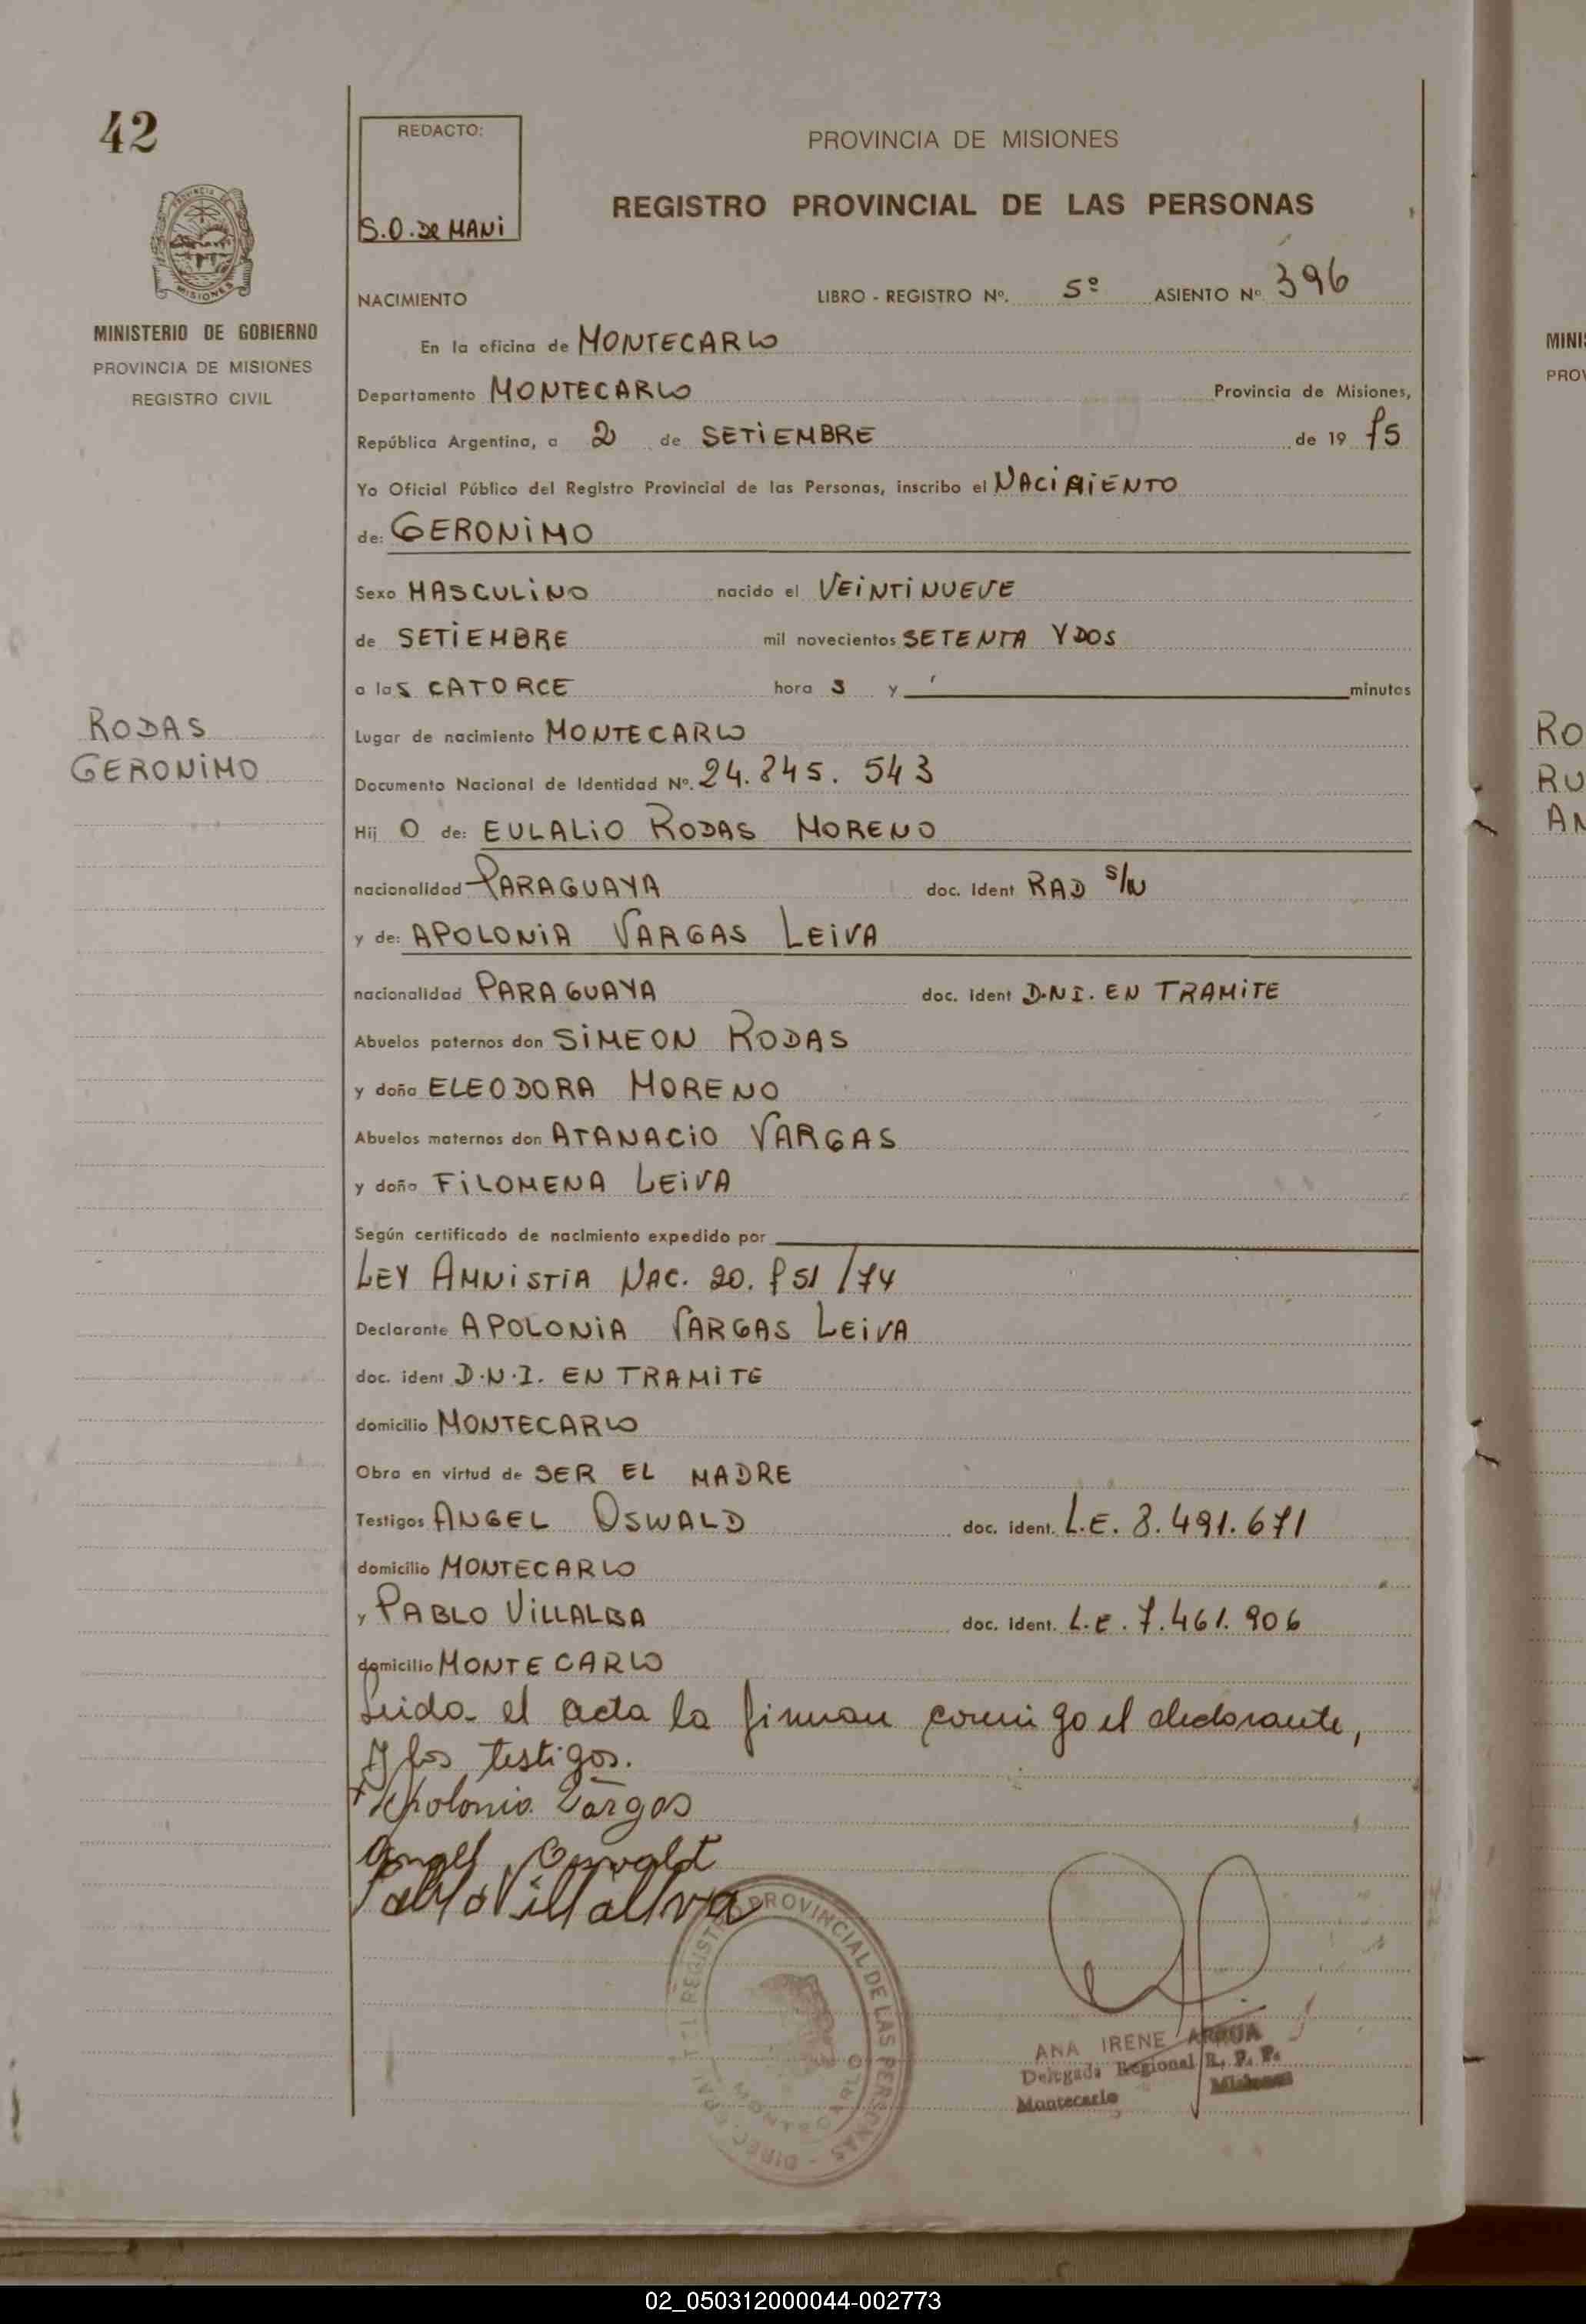 42
REDACTO:
S.O. DE MANI
PROVINCIA DE MISIONES
REGISTRO PROVINCIAL DE LAS PERSONAS
PROVINCIA
MISIONES
MINISTERIO DE GOBIERNO
PROVINCIA DE MISIONES
REGISTRO CIVIL
NACIMIENTO LIBRO - REGISTRO Nº. 5º ASIENTO Nº 396
En la oficina de MONTECARLO
Departamento MONTECARLO Provincia de Misiones,
República Argentina, a 2 de SETIEMBRE de 19 75
Yo Oficial Público del Registro Provincial de las Personas, inscribo el NACIMIENTO
de: GERONIMO
Sexo MASCULINO nacido el VEINTINUEVE
de SETIEMBRE mil novecientos SETENTA Y DOS
a las CATORCE hora s y minutos
RODAS
GERONIMO
Lugar de nacimiento MONTECARLO
Documento Nacional de Identidad Nº. 24.845.543
Hij O de: EULALIO RODAS MORENO
nacionalidad PARAGUAYA doc. Ident RAD S/N
y de: APOLONIA VARGAS LEIVA
nacionalidad PARAGUAYA doc. Ident D.N.I. EN TRAMITE
Abuelos paternos don SIMEON RODAS
y doña ELEODORA MORENO
Abuelos maternos don ATANACIO VARGAS
y doña FILOMENA LEIVA
Según certificado de nacimiento expedido por
LEY AMNISTIA NAC. 20.751/74
Declarante APOLONIA VARGAS LEIVA
doc. ident D.N.I. EN TRAMITE
domicilio MONTECARLO
Obra en virtud de SER EL MADRE
Testigos ANGEL OSWALD doc. ident. L.E. 8.491.671
domicilio MONTECARLO
y PABLO VILLALBA doc. Ident. L.E. 7.461.906
domicilio MONTECARLO
Leida el acta la firman conmigo el declarante,
y los testigos.
Apolonia Vargas
Angel Oswald
Pablo Villallva
REGISTRO PROVINCIAL DE LAS PERSONAS
MONTECARLO
ANA IRENE ARRUA
Delegada Regional R. P. P.
Montecarlo Misiones
MINIS
PROV
RO
RU
AN
02_050312000044-002773